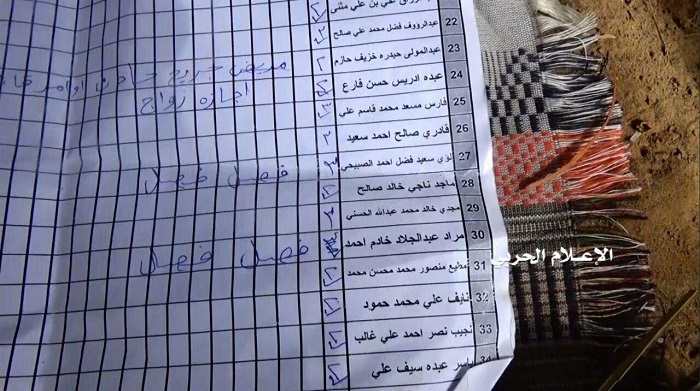 علي بن علي مثنى
22 عبدالرؤوف فضل محمد علي صالح
23 عبدالمولى حيدره خزيف حازم
24 عبده ادريس حسن فارع
مريض جروح
25 فارس مسعد محمد قاسم علي
اجازه زواج
26 قادري صالح احمد سعيد
27 لؤي سعيد فضل احمد الصبيحي
فصل فصل
28 ماجد ناجي خالد صالح
29 مجدي خالد محمد عبدالله الحسني
30 مراد عبدالجلاد خادم احمد
فصل فصل
31 مطيع منصور محمد محسن محمد
الإعلام الحربي
32 نايف علي محمد حمود
33 نجيب نصر احمد علي غالب
34 ياسر عبده سيف علي